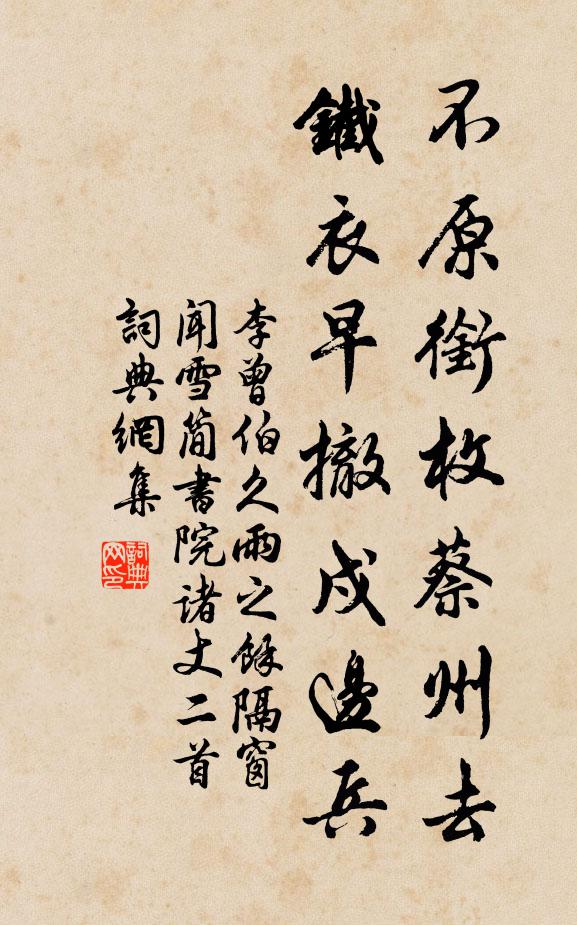 不原銜枚蔡州去
鐵衣早撤戍邊兵
李曾伯久雨之餘隔窗
聞雪簡書院诸丈二首
詞典網集
詞典网印